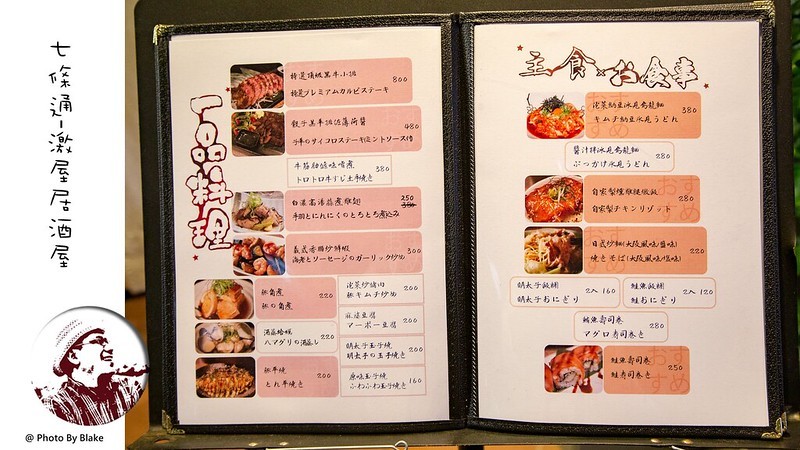 七條通-激屋居酒屋
@ Photo By Blake
一品料理
特選頂級黑牛小排
特選プレミアムカルビステーキ
800
骰子黑牛排佐薄荷醬
牛串のサイコロステーキ(ミントソース付
480
牛筋
味噌煮
トロトロ牛すじ土手焼き
380
白濃高湯蒜煮雞翅
手羽とにんにくのとろとろ煮込み
250
380
義式香腸炒鮮蝦
海老とソーセージのガーリック炒め
300
豚角煮
豚の角煮
220
湯蒸蛤蜊
ハマグリの酒蒸し
220
豚平燒
とん平焼き
200
泡菜炒豬肉
豚キムチ炒め
200
麻婆豆腐
マーボー豆腐
200
明太子玉子燒
明太子の玉子焼き
200
原味玉子燒
ふわふわ玉子焼き
160
主食×お食事
泡菜納豆冰見烏龍麵
キムチ納豆氷見うどん
380
醬汁拌冰見烏龍麵
ぶっかけ氷見うどん
280
自家製燻雞燉飯
自家製チキンリゾット
280
日式炒麵(大阪風味/鹽味)
焼きそば(大阪風味/塩味)
220
明太子飯糰
明太子おにぎり
2入 160
鮭魚飯糰
鮭おにぎり
2入 120
鮪魚壽司卷
マグロ寿司巻き
280
鮭魚壽司卷
鮭寿司巻き
250
おすすめ